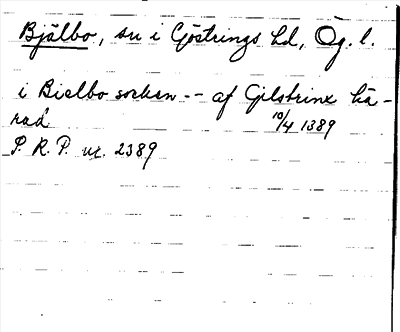 Bjälbo, sn i Göstrings hd, Ög. l.
i Bielbo sorken -- af Gilstrinx hä-
rad 10/4 1389
P. R. P. nr. 2389